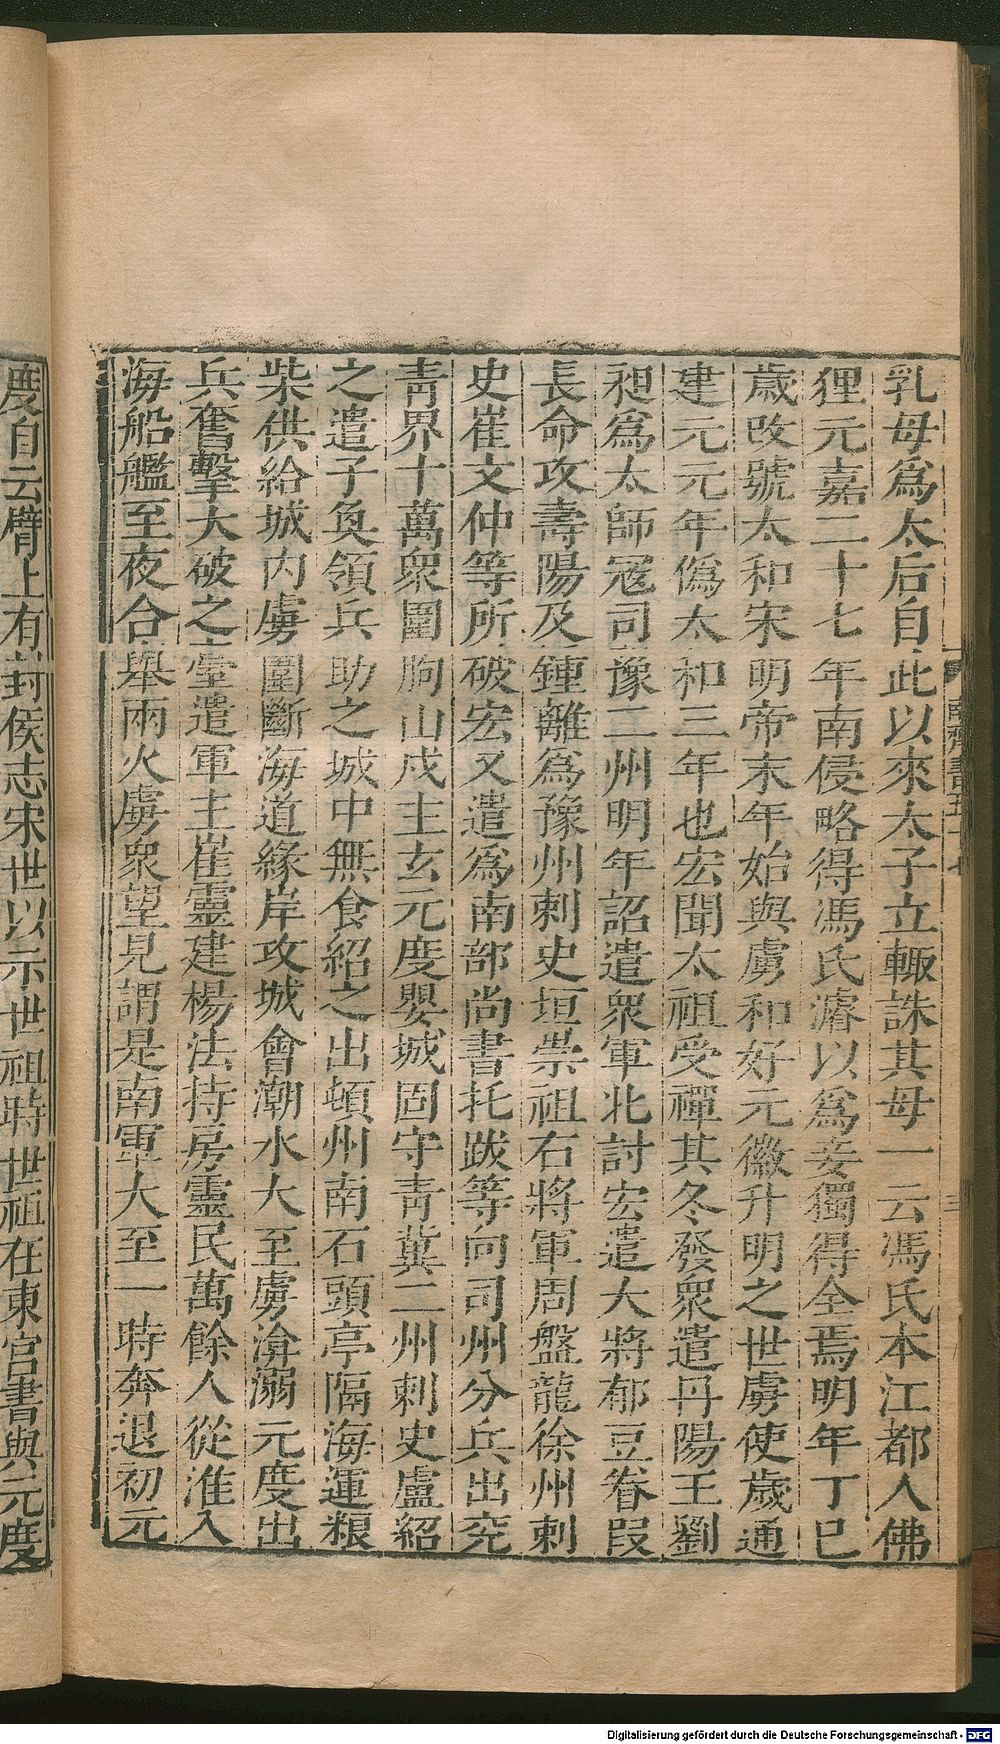 乳母爲太后自此以來太子立輙誅其母一云馮氏本江都人佛
狸元嘉二十七年南侵略得馮氏濬以爲妾獨得全焉明年丁巳
歲改號太和宋明帝末年始與虜和好元徽升明之世虜使歲通
建元元年僞太和三年也宏聞太祖受禪其冬發衆遣丹陽王劉
昶爲太師寇司豫二州明年詔遣衆軍北討宏遣大將郁豆眷段
長命攻壽陽及鍾離爲豫州刺史垣崇祖右將軍周盤龍徐州刺
史崔文仲等所破宏又遣爲南部尚書托跋等向司州分兵出兖
青界十萬衆圍朐山戍主玄元度嬰城固守青冀二州刺史盧紹
之遣子奐領兵助之城中無食紹之出頓州南石頭亭隔海運粮
柴供給城内虜圍斷海道緣岸攻城會潮水大至虜渰溺元度出
兵奮擊大破之臺遣軍主崔靈建楊法持房靈民萬餘人從淮入
海船艦至夜合舉兩火虜衆望見謂是南軍大至一時奔退初元
度自云臂上有封侯志宋世以示世祖時世祖在東宮書與元度
南齊書五十七
三
Digitalisierung gefördert durch die Deutsche Forschungsgemeinschaft - DFG